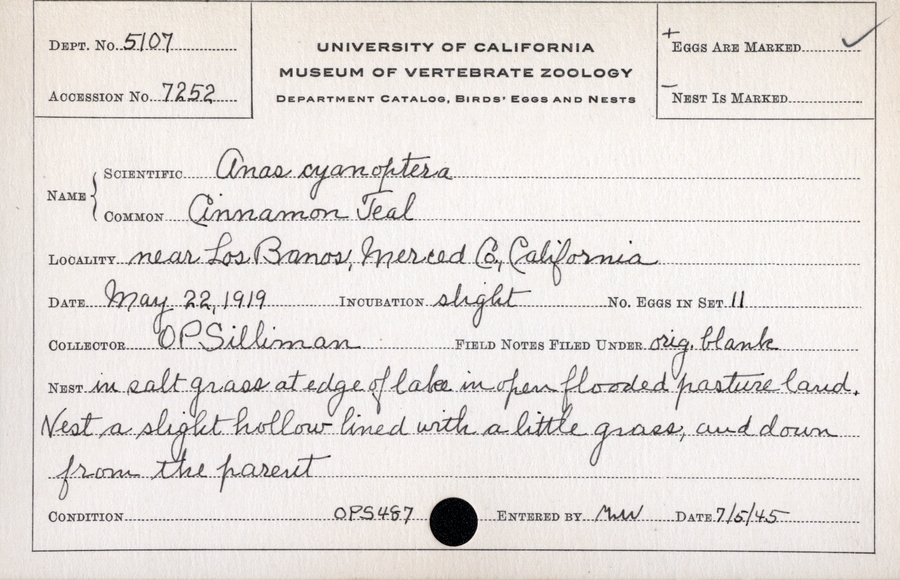 DEPT. No. 5107
ACCESSION No. 7252
UNIVERSITY OF CALIFORNIA
MUSEUM OF VERTEBRATE ZOOLOGY
DEPARTMENT CATALOG, BIRDS' EGGS AND NESTS
+ EGGS ARE MARKED ✓
- NEST IS MARKED
NAME { SCIENTIFIC Anas cyanoptera
COMMON Cinnamon Teal
LOCALITY near Los Banos, Merced Co., California
DATE May 22, 1919 INCUBATION slight No. EGGS IN SET 11
COLLECTOR OPSilliman FIELD NOTES FILED UNDER orig. blank
NEST in salt grass at edge of lake in open flooded pasture land.
Nest a slight hollow lined with a little grass, and down
from the parent
CONDITION OPS487 ENTERED BY DATE 7/5/45